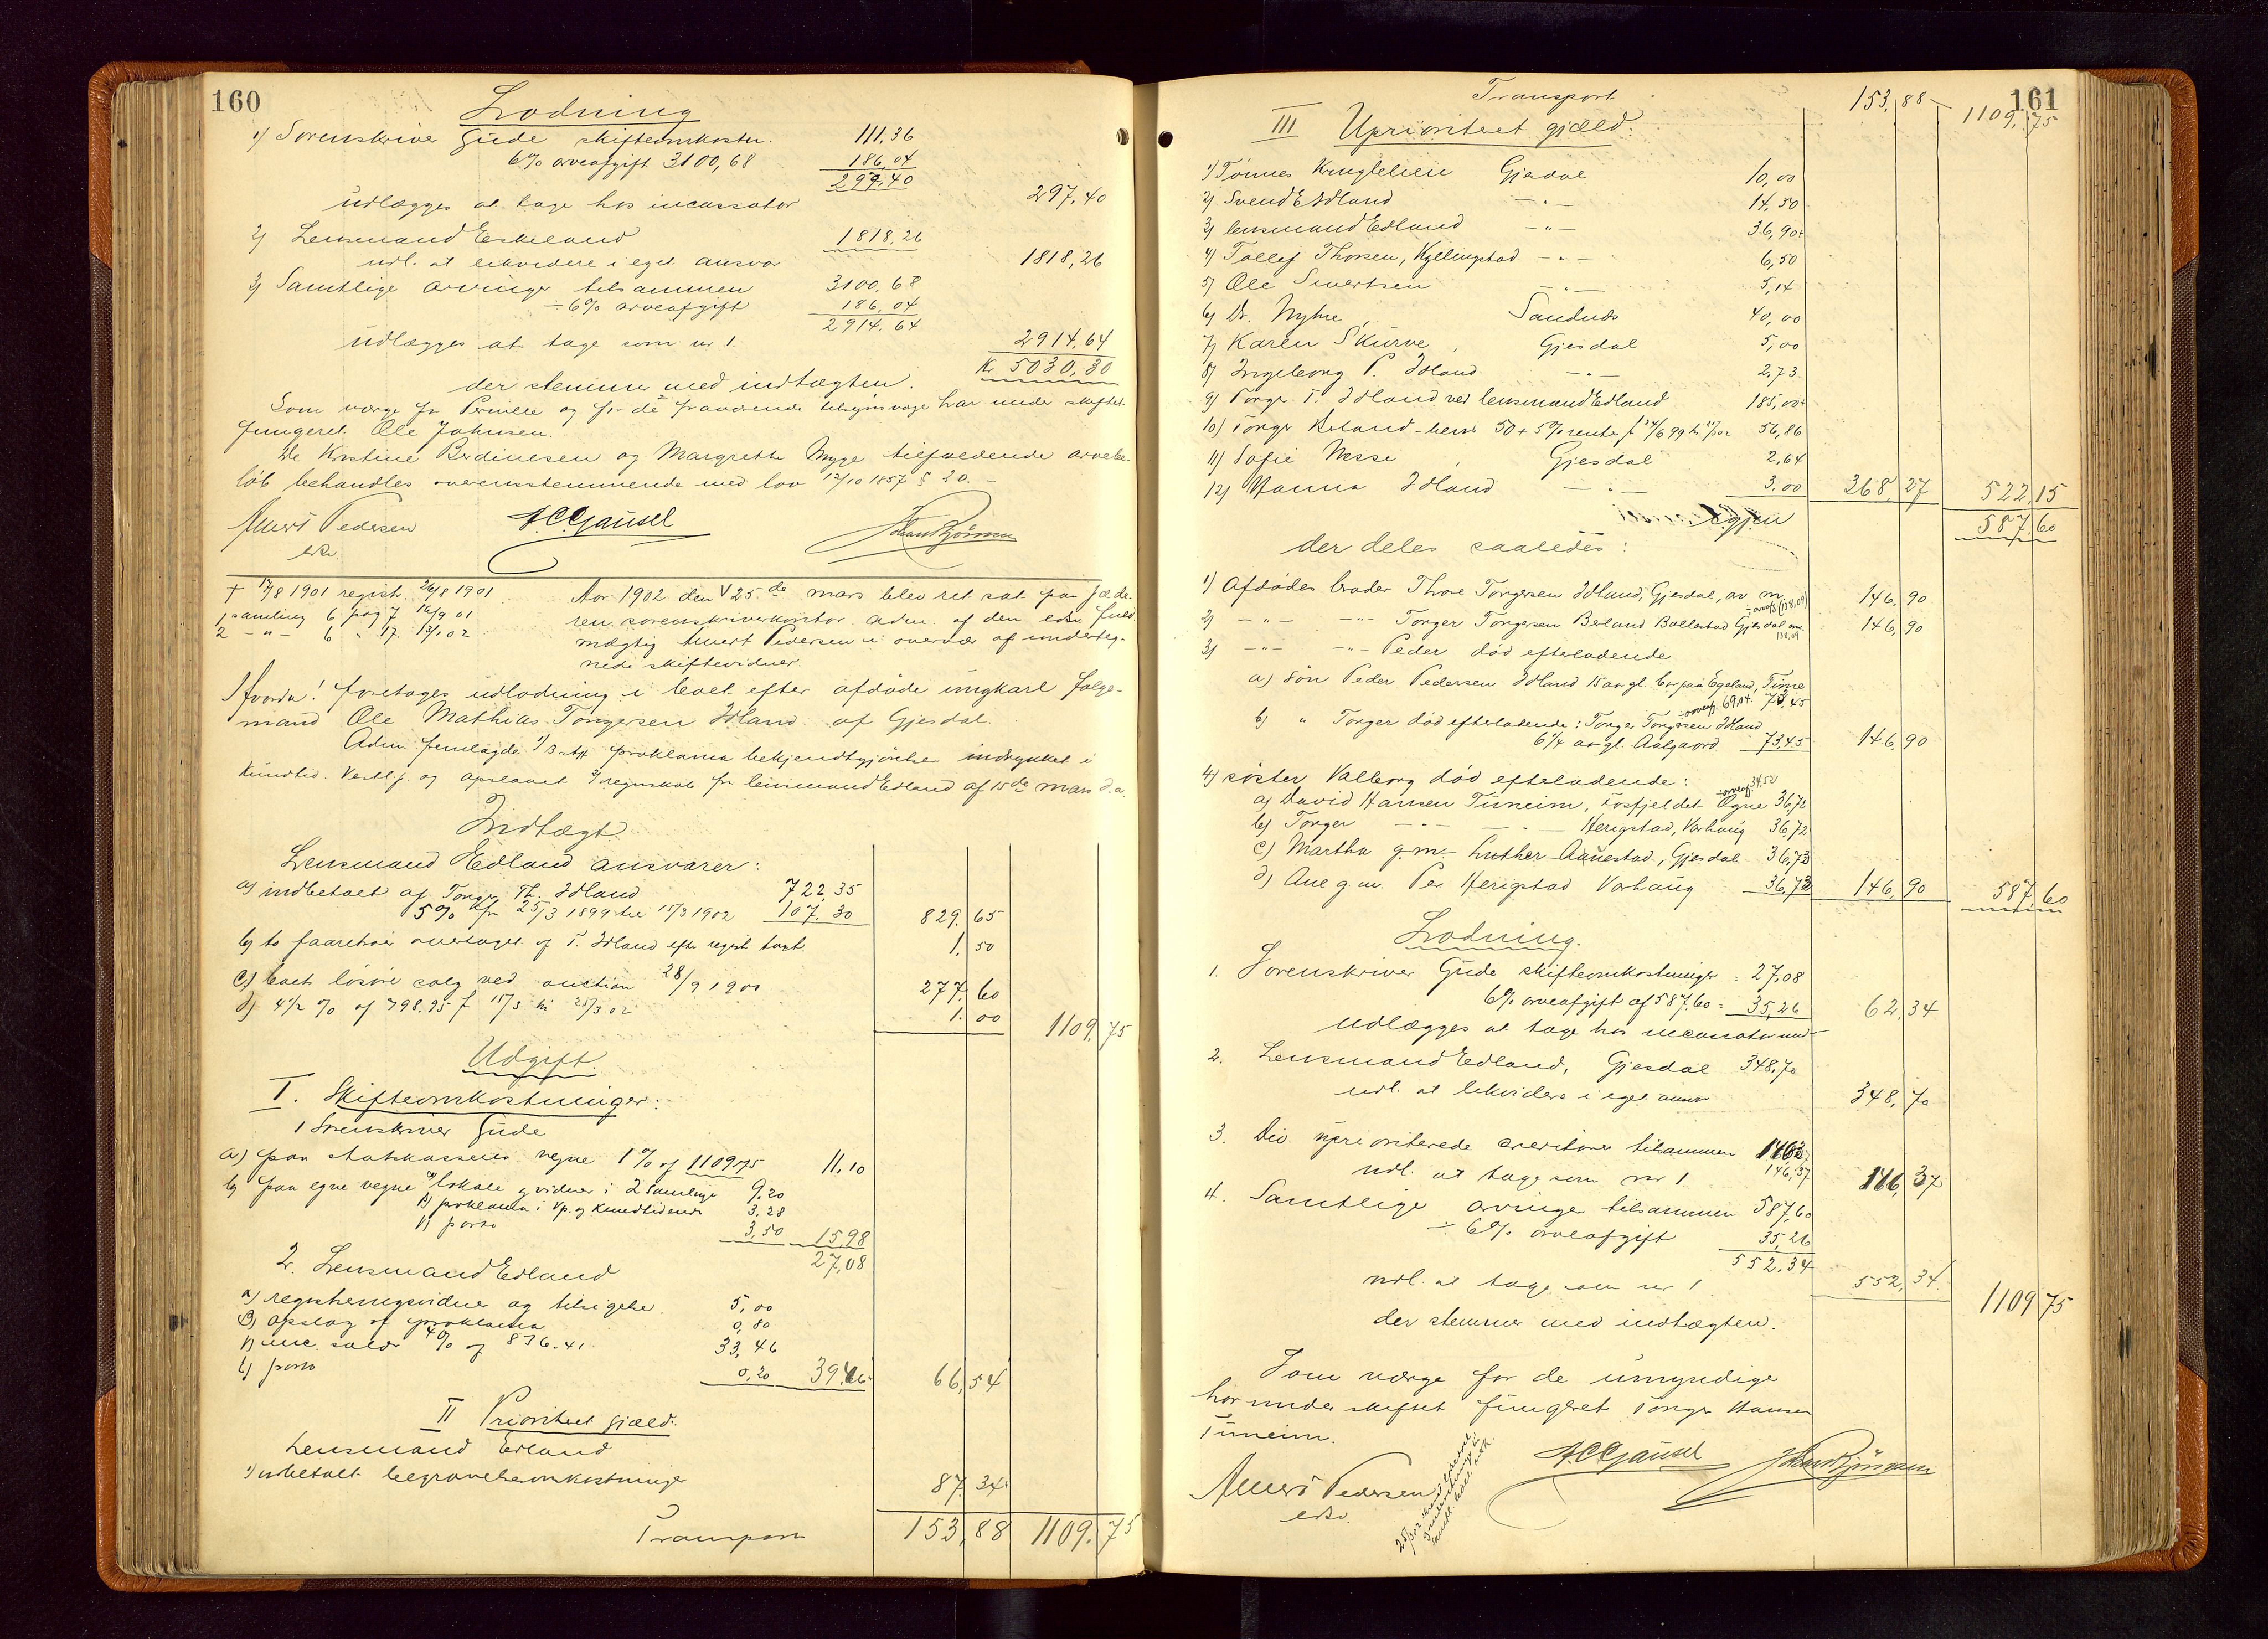 160
Lodning
1) Sorenskriver Gude skifteomkostn. 111,36
6% arveafgift 3100,68 186,04
297,40
udlægges at tage hos incassator 297,40
2) Lensmand Eskeland 1818,26
udl. at likvidere i eget ansvar 1818,26
3) Samtlige arvinger tilsammen 3100,68
÷ 6% arveafgift 186,04
2914,64
udlægges at tage som nr 1. 2914,64
Kr 5030,30
der stemmer med indtægten.
Som værge for Pernille og for de fraværende har under skiftet
fungeret Ole Johnsen.
De Kristine Berdinesen og Margrethe Mygge tilfaldende arvebe-
løb behandles overensstemmende med lov 12/10 1857 § 20. –
Sivert Pedersen H C Gausel Johan Bjørnsen
edsv.
† 17/8 1901 registr. 26/8 1901
1 samling 6 pag 7 16/9 01
2 -"- 6 " 17 13/1 02
Aar 1902 den 25de mars blev ret sat paa Jæde-
ren sorenskriverkontor adm. af den edsv. fuld-
mægtig Sivert Pedersen i overvær af underteg-
nede skiftevidner.
Hvorda! foretages udlodning i boet efter afdøde ungkarl
mand Ole Mathias Torgersen Idland af Gjesdal.
Adm. fremlagde 1) proklama bekjendtgjørelse indrykket i
Kundtid. Vestl.p. og opslaaet 2) regnskab fra lensmand Edland af 15de mars d.a.
Indtægt
Lensmand Edland ansvarer:
a) indbetalt af Torger Th. Idland 722,35
5% fra 25/3 1899 til 15/3 1902 107,30 829,65
b) to faarehoer overtaget af T. Idland efter regist. taxt. 1,50
c) boets løsøre solg ved auction 28/9 1901 277,60
d) 4½ % af 798.95 f 15/3 til 25/3 02 1,00 1109,75
Udgift.
I. Skifteomkostninger:
1 Sorenskriver Gude
a) paa statskassens vegne 1% af 1109,75 11,10
b) paa egne vegne α) lokale og vidner i 2 samlinger 9,20
β) proklama i Vp. og Kundtidende 3,28
γ) porto 3,50 15,98
27,08
2. Lensmand Edland
a) registreringsvidner og tilsigelse 5,00
β) opslag af proklama 0,80
γ) inc. salær 4% af 836.41 33,46
δ) porto 0,20 39,46 66,54
II Prioritert gjæld:
Lensmand Edland
1) udbetalt begravelsesomkostninger 87,34
Transport 153,88 1109,75
161
Transport 153,88 1109,75
III Uprioritert gjæld:
1) Tønnes Kruglelien Gjesdal 10,00
2) Svend E Idland -"- 14,50
3) lensmand Edland -"- 36,90
4) Tollef Thorsen, Kyllingstad -"- 6,50
5) Ole Sivertsen -"- 5,14
6) Dr. Nyhre, Sandnes 40,00
7) Karen Skurve, Gjesdal 5,00
8) Ingeborg P. Idland -"- 2,73
9) Torger T. Idland ved lensmand Edland 185,00
10) Torger Berland 50 + 5% rente 56,86
11) Sofie Nesse, Gjesdal 2,64
12) Hanna Idland -"- 3,00 368,27 522,15
Igjen 587,60
der deles saaledes:
1) Afdødes broder Thore Torgersen Idland, Gjesdal, av m. 146,90
÷ arvafg (138,09)
2) -"- -"- Torger Torgersen Berland Ballestad Gjesdal m. 146,90
138,09
3) -"- -"- Peder død efterladende
a) Søn Peder Pedersen Idland 15 aar gl. bor paa Egeland, Time
÷ arveafg. 69,04. 73,45
b) " Torger død efterladende: Torger Torgersen Idland
6¼ aar gl. Aalgaard 73,45 146,90
4) søster Valborg død efterladende:
÷ arveaf. 34,52
a) David Hansen Tuneim, Fosfjeldet Ogne 36,72
b) Torger -"- -"- Herigstad, Varhaug 36,72
c) Martha g.m. Luther Aanestad, Gjesdal 36,73
d) Ane g m. Per Herigstad Varhaug 36,73 146,90 587,60
Lodning.
1. Sorenskriver Gude skifteomkostninger = 27,08
6% arveafgift af 587,60 = 35,26 62,34
udlægges at tage hos
2. Lensmand Edland, Gjesdal 348,70
udl. at likvidere i eget ansvar 348,70
3. Div. uprioriterede creditorer tilsammen
146,37
udl. at tage som nr 1 146,37
4. Samtlige arvinger tilsammen 587,60
÷ 6% arveafgift 35,26
552,34
udl. at tage som nr 1 552,34 1109,75
der stemmer med indtægten.
Som værge for de umyndige
har under skiftet fungeret Torger Hansen
Tuneim.
Sivert Pedersen H C Gausel Johan Bjørnsen
edsv.